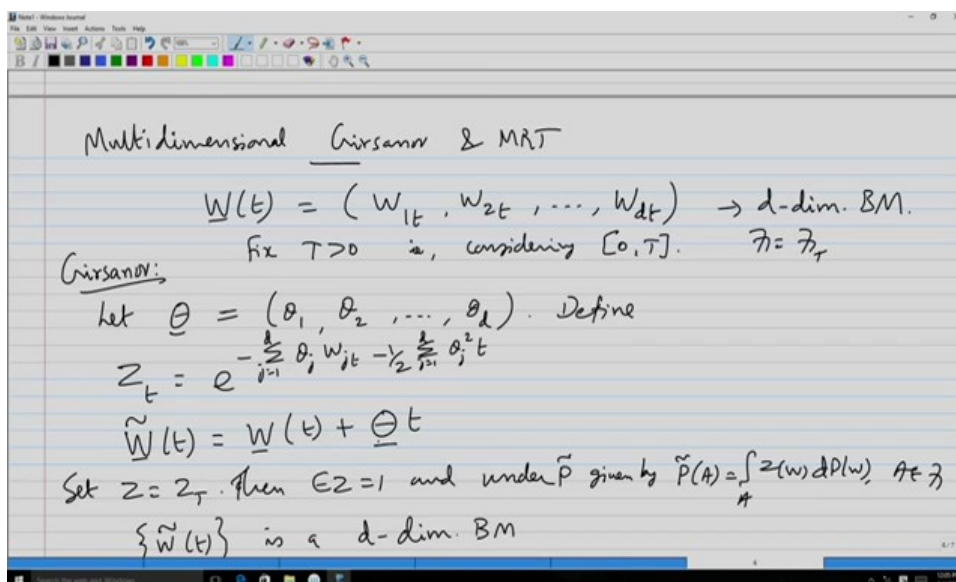 Note1 - Windows Journal
File Edit View Insert Actions Tools Help
B I
Multidimensional Girsanov & MRT
W(t) = (W_{1t}, W_{2t}, ..., W_{dt}) → d-dim. BM.
Fix T>0 ie, considering [0,T]. ℱ = ℱ_T
Girsanov:
Let θ = (θ_1, θ_2, ..., θ_d). Define
Z_t = e^{-∑_{j=1}^{d} θ_j W_{jt} - 1/2 ∑_{j=1}^{d} θ_j^2 t}
W̃(t) = W(t) + θ t
Set Z = Z_T. Then EZ = 1 and under P̃ given by P̃(A) = ∫_A Z(w) dP(w), A ∈ ℱ
{W̃(t)} is a d-dim. BM
Search the web and Windows